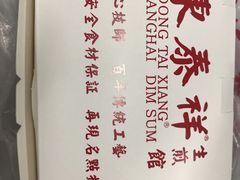 東泰祥®
生煎館
DONG TAI XIANG®
SHANGHAI DIM SUM
心技師 百年傳統工藝
安全食材保証 再現名點